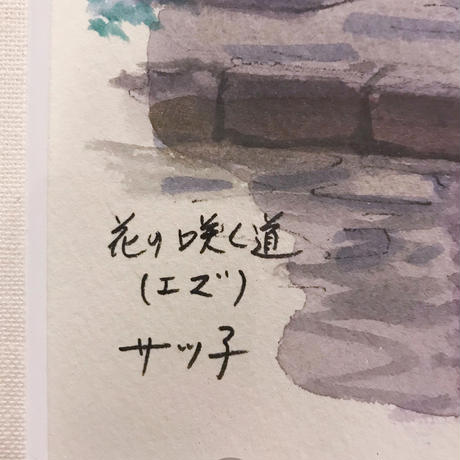 花の咲く道
(エズ)
サツ子